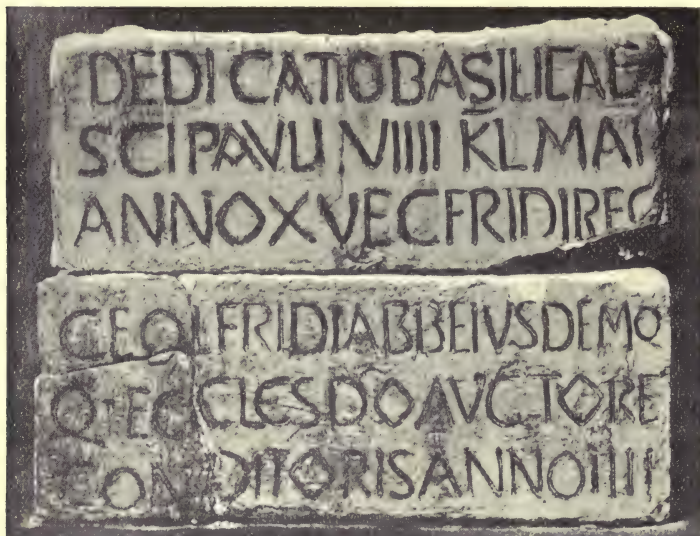 DEDICATIO BASILICAE
SCI PAVLI VIIII KL MAI
ANNO XV ECFRIDI REG
CEOLFRIDI ABB EIVSDEM Q
Q ECCLES DO AVCTORE
CONDITORIS ANNO IIII